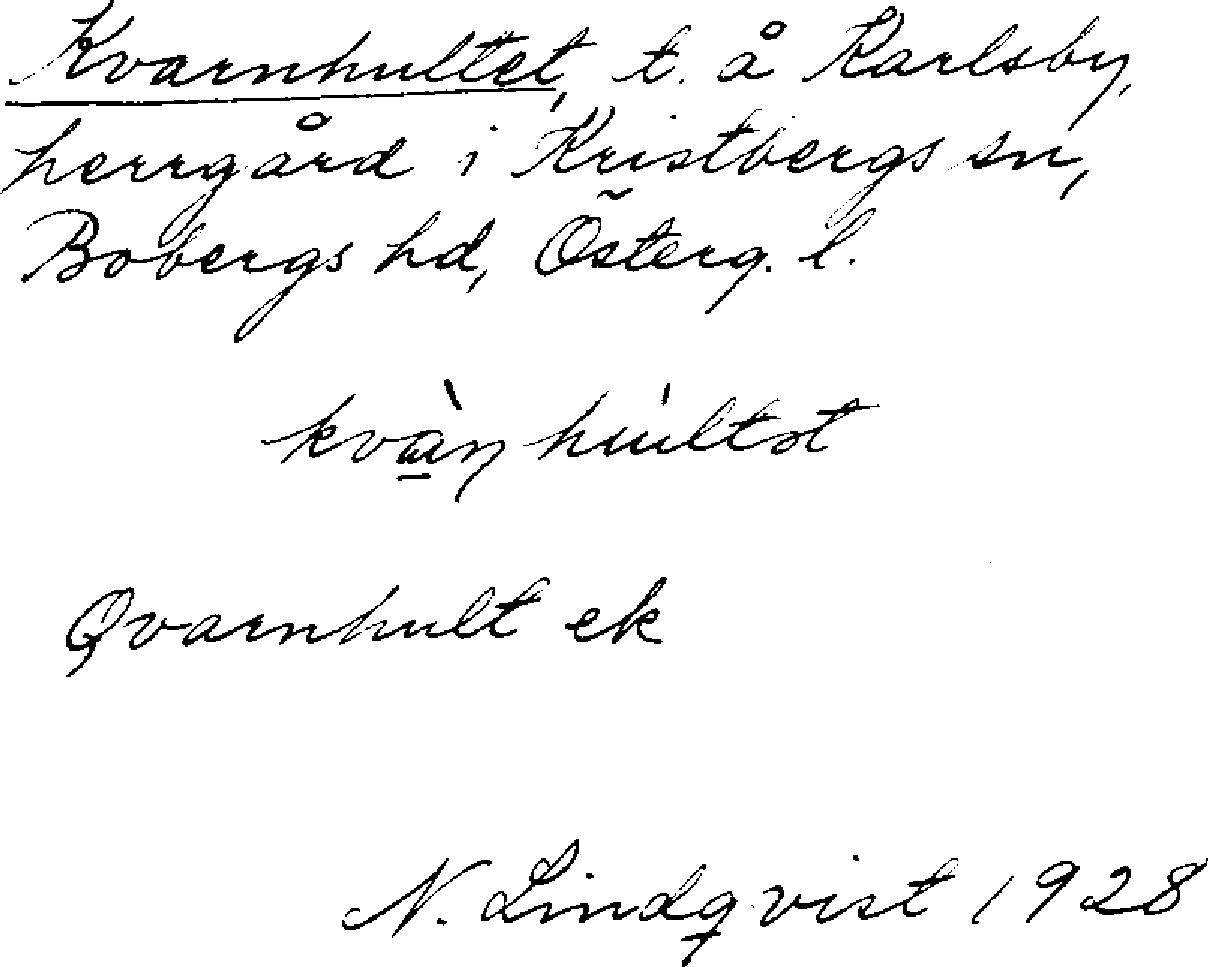 Kvarnhultet, t. å Karlsby,
herrgård i Kristbergs sn,
Bobergs hd, Österg. l.
kvàn hu̇ltət
Qvarnhult ek
N. Lindqvist 1928